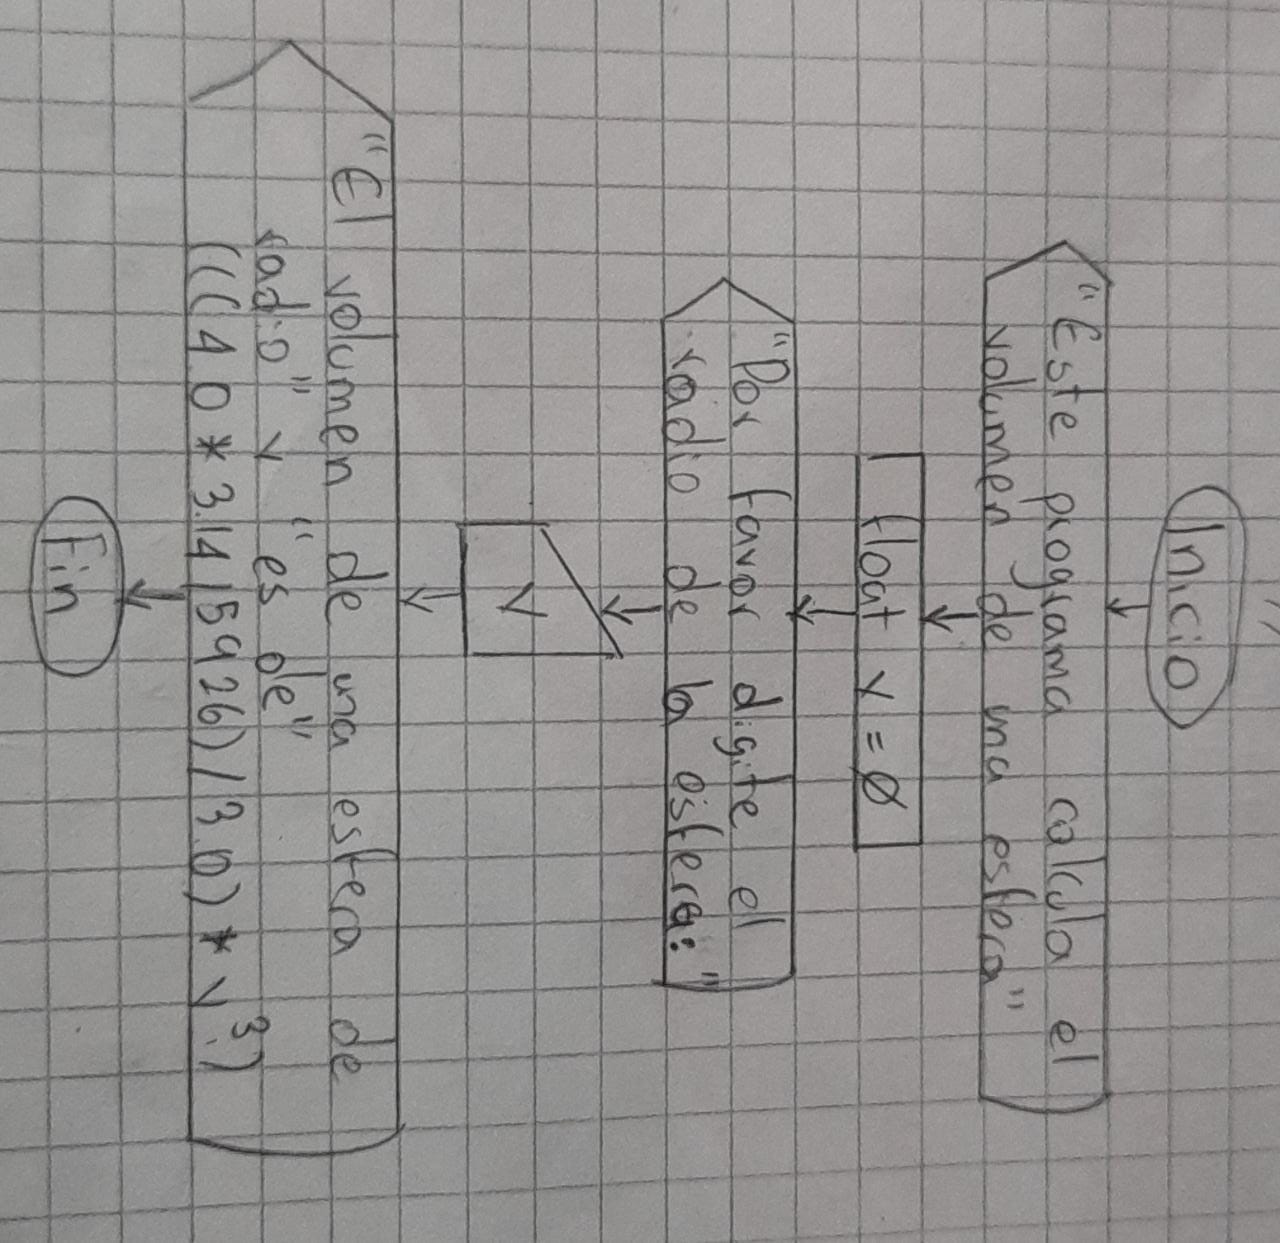 Inicio
"Este programa calcula el
volumen de una esfera"
float v = Ø
"Por favor digite el
radio de la esfera:"
v
"El volumen de una esfera de
radio" v "es de"
(((4.0 * 3.1415926) / 3.0) * v³.)
Fin